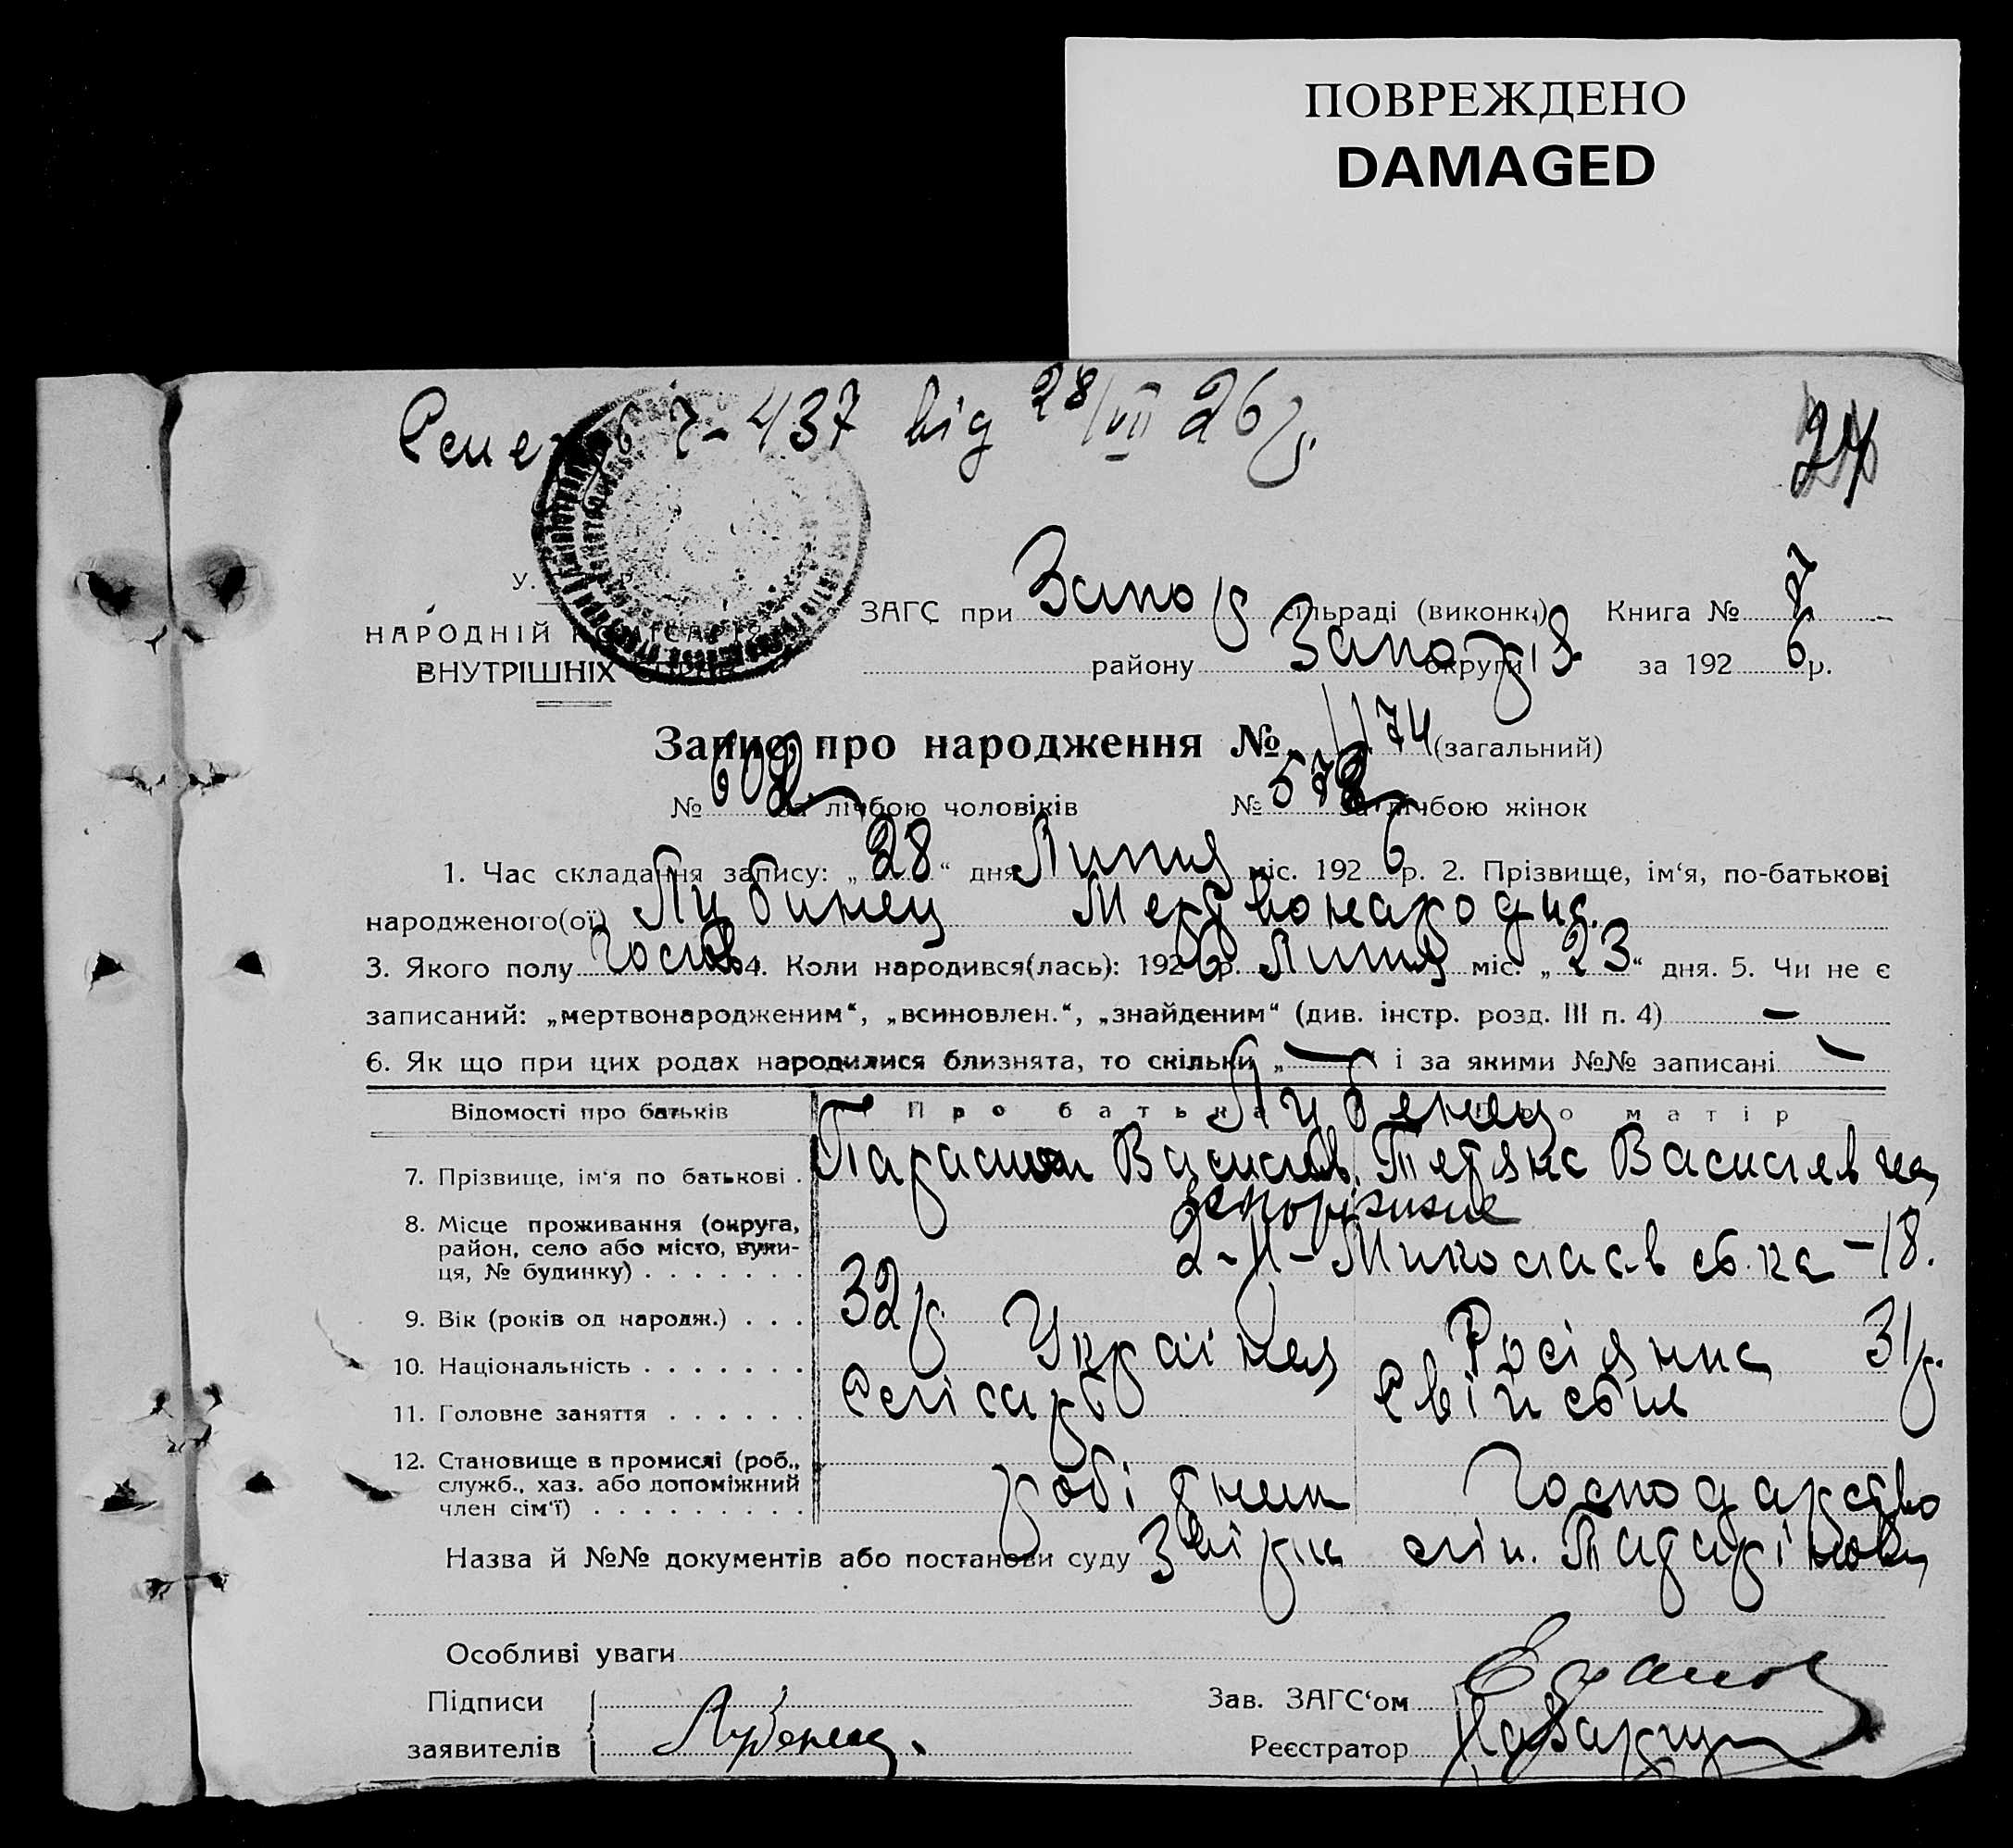 ПОВРЕЖДЕНО
DAMAGED
437 від 28/VII 26 р.
27
У.
ЗАГС при Запор сільраді (виконк.) Книга № 7
НАРОДНІЙ КОМІСАРІЯТ
району Запоріз округи за 1926 р.
ВНУТРІШНІХ СПРАВ
Запис про народження № 1174 (загальний)
№ 602 за лічбою чоловіків № 572 за лічбою жінок
1. Час складання запису: „28“ дня Липня міс. 1926 р. 2. Прізвище, ім‘я, по-батькові
народженого(ої) Лубинец Мертвонародив.
3. Якого полу Чолов 4. Коли народився(лась): 1926 р. Липня міс. „23“ дня. 5. Чи не є
записаний: „мертвонародженим“, „всиновлен.“, „знайденим“ (див. інстр. розд. III п. 4) —
6. Як що при цих родах народилися близнята, то скільки „—“ і за якими №№ записані —
Відомості про батьків Про батька Про матір
Лубенец
7. Прізвище, ім‘я по батькові . Парамон Васильов. Тетяна Васильевна
8. Місце проживання (округа, Запоріжжє
район, село або місто, вули-
ця, № будинку) . . . . . . . 2-Н-Миколаєвська – 18.
9. Вік (років од народж.) . . . 32 р. 31 р.
10. Національність . . . . . . . Українец Росіянка
11. Головне заняття . . . . . . Слісарь Свійське
12. Становище в промислі (роб.,
служб., хаз. або допоміжний робітник Господарство
член сім‘ї) . . . . . . . . .
Назва й №№ документів або постанови суду
Особливі уваги
Підписи Зав. ЗАГС‘ом
заявителів Лубенец. Реєстратор